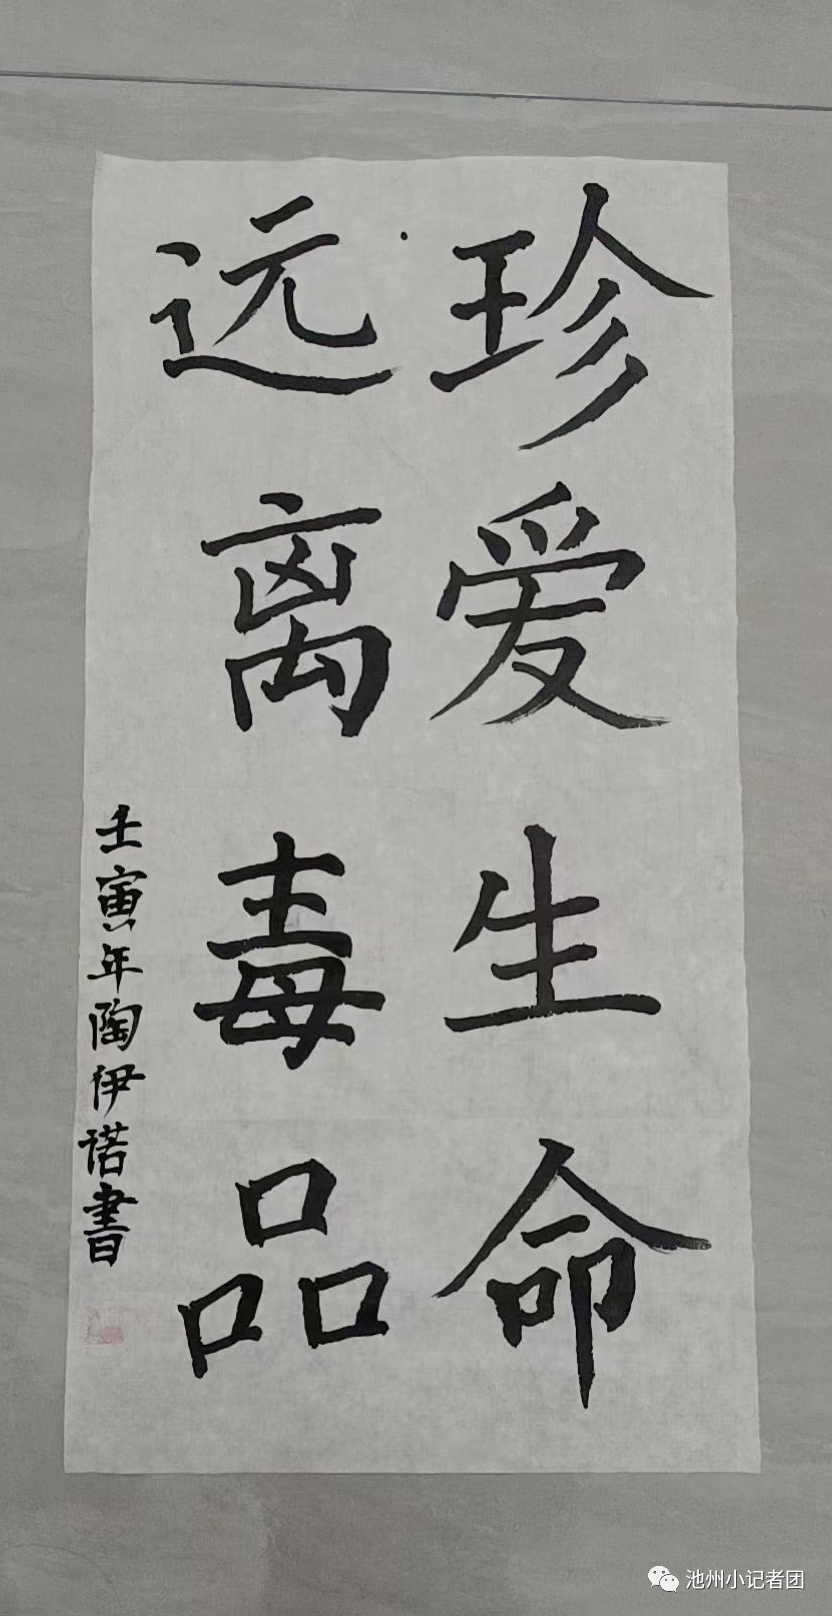 珍爱生命
远离毒品
壬寅年陶伊诺書
池州小记者团